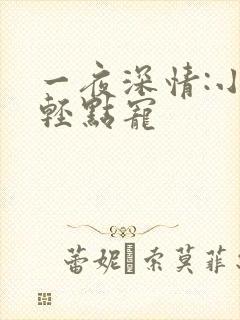 一夜深情:小
輕點寵
蕾妮·索莫菲